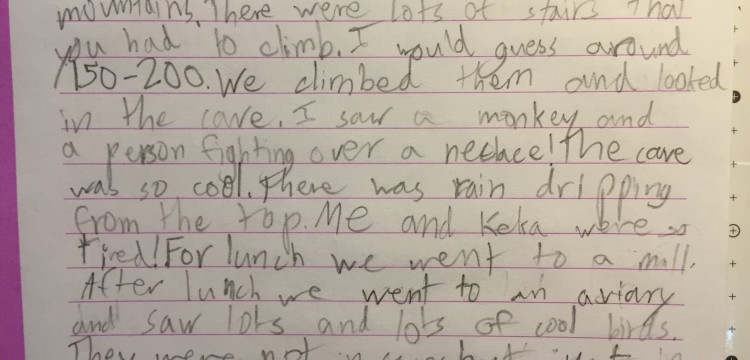 mountains. There were lots of stairs that
you had to climb. I would guess around
150-200. We climbed them and looked
in the cave. I saw a monkey and
a person fighting over a neclace! The cave
was so cool. There was rain dripping
from the top. Me and Keka were so
tired! For lunch we went to a mall.
After lunch we went to an aviary
and saw lots and lots of cool birds.
They were not in